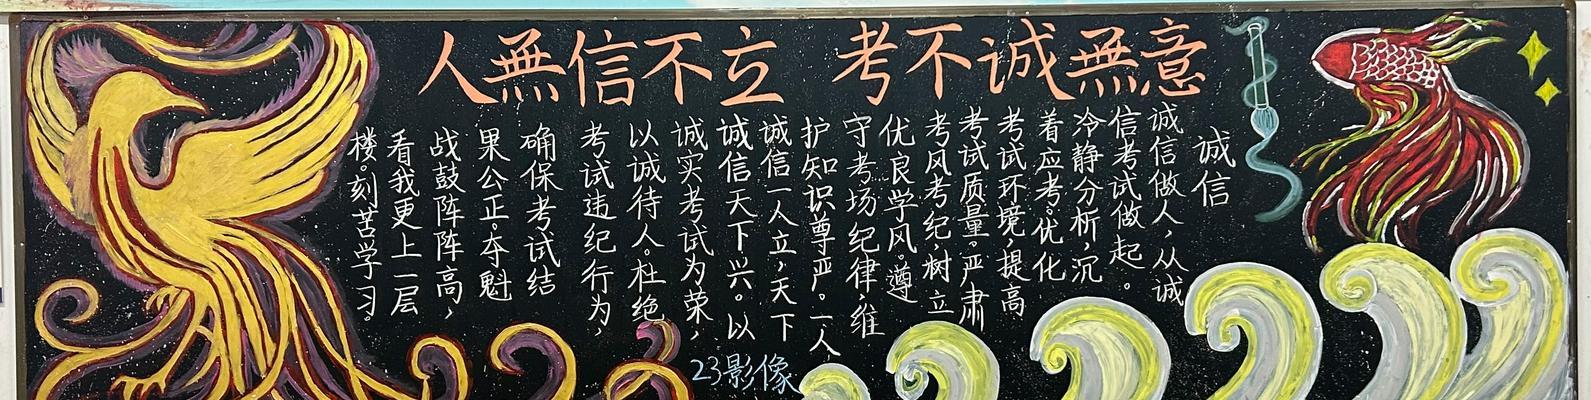 人無信不立 考不诚無意
诚信
诚信做人，从诚
信考试做起。
冷静分析，沉
着应考。优化
考试环境，提高
考试质量。严肃
考风考纪，树立
优良学风。遵
守考场纪律，维
护知识尊严。一人
诚信一人立，天下
诚信天下兴。以
诚实考试为荣，
以诚待人。杜绝
考试违纪行为，
确保考试结
果公正。夺魁
战鼓阵阵高，
看我更上一层
楼。刻苦学习。
23影像